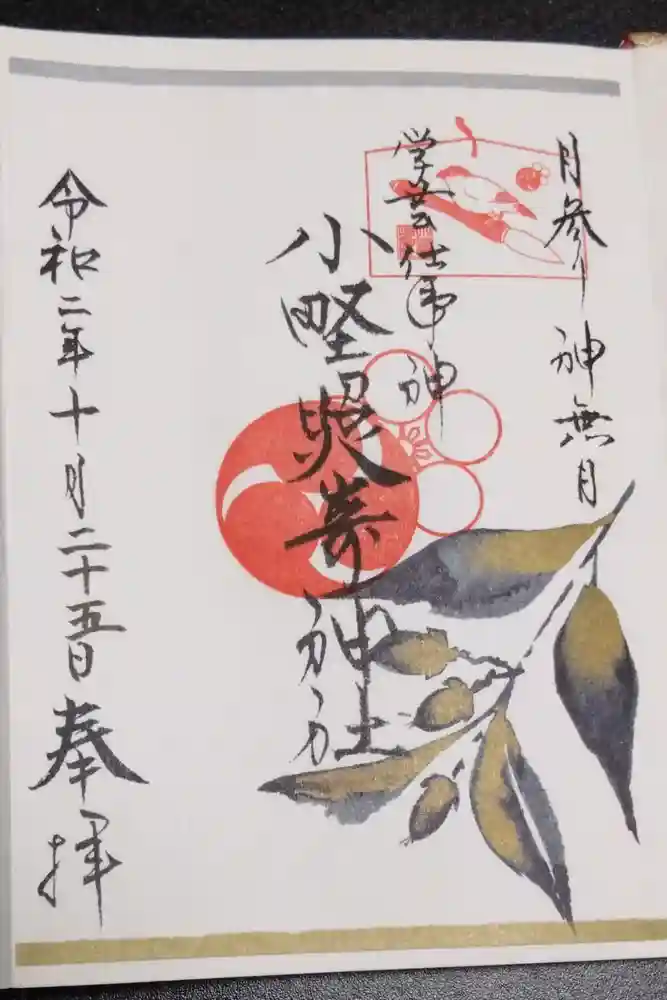 月参り 神無月
学芸仕事神
小野照嵜神社
令和二年十月二十五日 奉拝